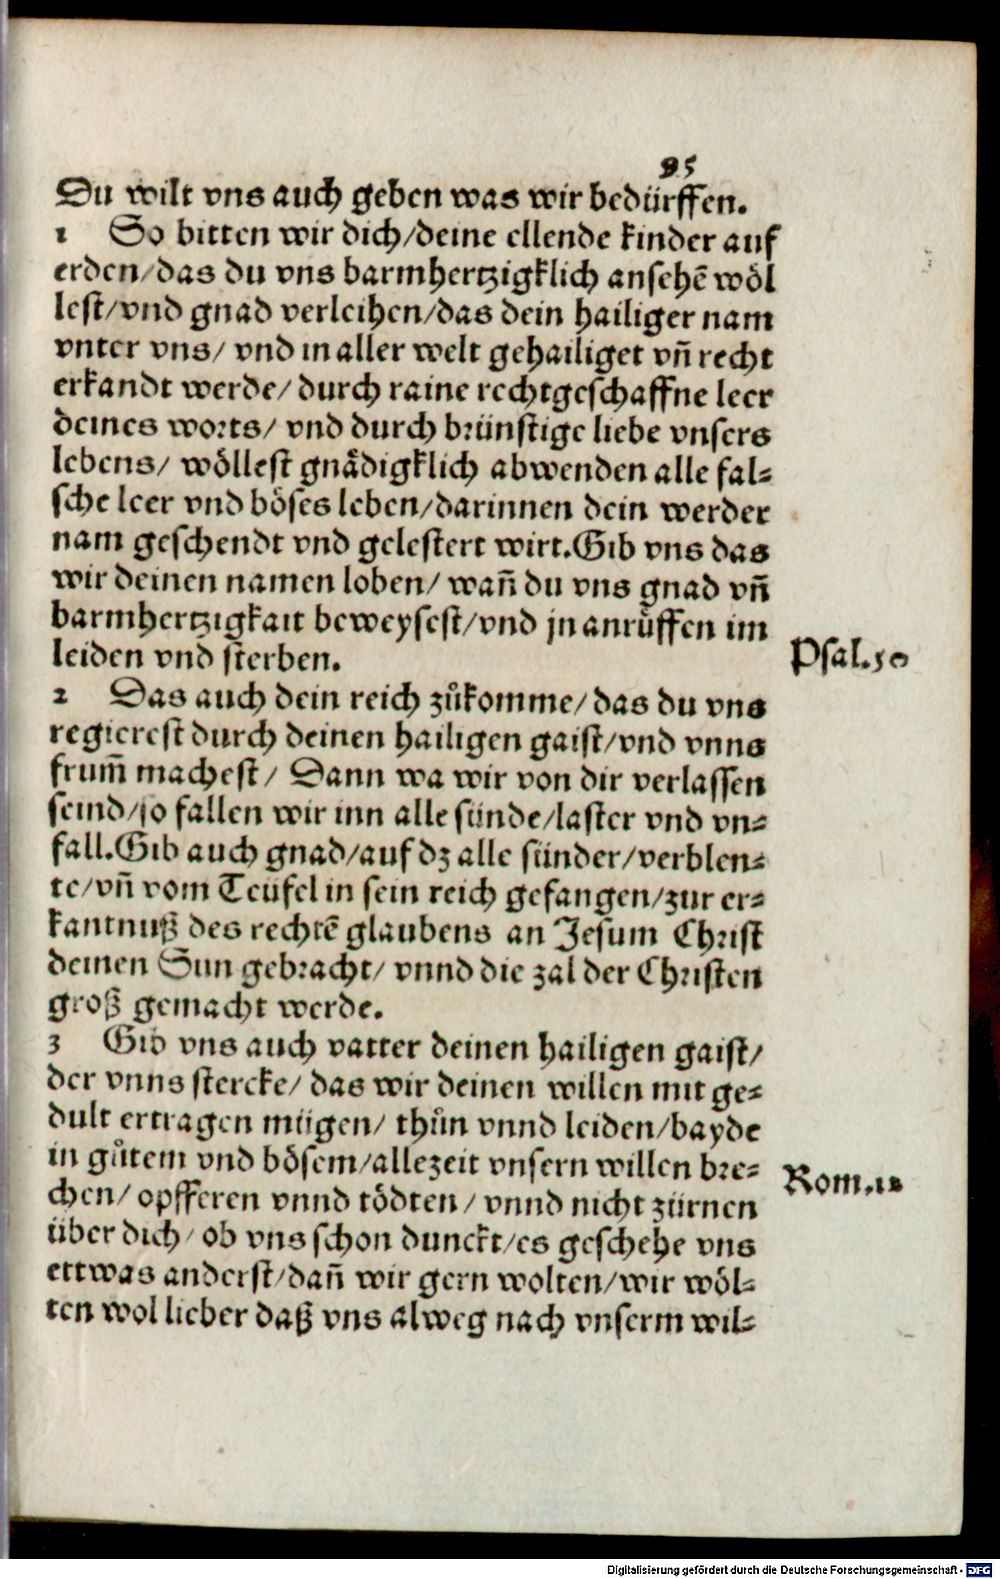 95
Du wilt vns auch geben was wir bedürffen.
1 So bitten wir dich/deine ellende kinder auf
erden/das du vns barmhertzigklich ansehẽ wöl
lest/vnd gnad verleihen/das dein hailiger nam
vnter vns/ vnd in aller welt gehailiget vñ recht
erkandt werde/ durch raine rechtgeschaffne leer
deines worts/ vnd durch brünstige liebe vnsers
lebens/ wöllest gnädigklich abwenden alle fal⸗
sche leer vnd böses leben/darinnen dein werder
nam geschendt vnd gelestert wirt.Gib vns das
wir deinen namen loben/ wañ du vns gnad vñ
barmhertzigkait beweysest/vnd jn anrůffen im
leiden vnd sterben.
Psal.50
2 Das auch dein reich zůkomme/das du vns
regierest durch deinen hailigen gaist/vnd vnns
frum̃ machest/ Dann wa wir von dir verlassen
seind/so fallen wir inn alle sünde/laster vnd vn⸗
fall.Gib auch gnad/auf dz alle sünder/verblen⸗
te/vñ vom Teüfel in sein reich gefangen/zur er⸗
kantnuß des rechtẽ glaubens an Jesum Christ
deinen Sun gebracht/ vnnd die zal der Christen
groß gemacht werde.
3 Gib vns auch vatter deinen hailigen gaist/
der vnns stercke/ das wir deinen willen mit ge⸗
dult ertragen mügen/ thůn vnnd leiden/bayde
in gůtem vnd bösem/allezeit vnsern willen bre⸗
Rom.12
chen/ opfferen vnnd tödten/ vnnd nicht zürnen
über dich/ ob vns schon dunckt/es geschehe vns
ettwas anderst/dañ wir gern wolten/wir wöl⸗
ten wol lieber daß vns alweg nach vnserm wil⸗
Digitalisierung gefördert durch die Deutsche Forschungsgemeinschaft - DFG